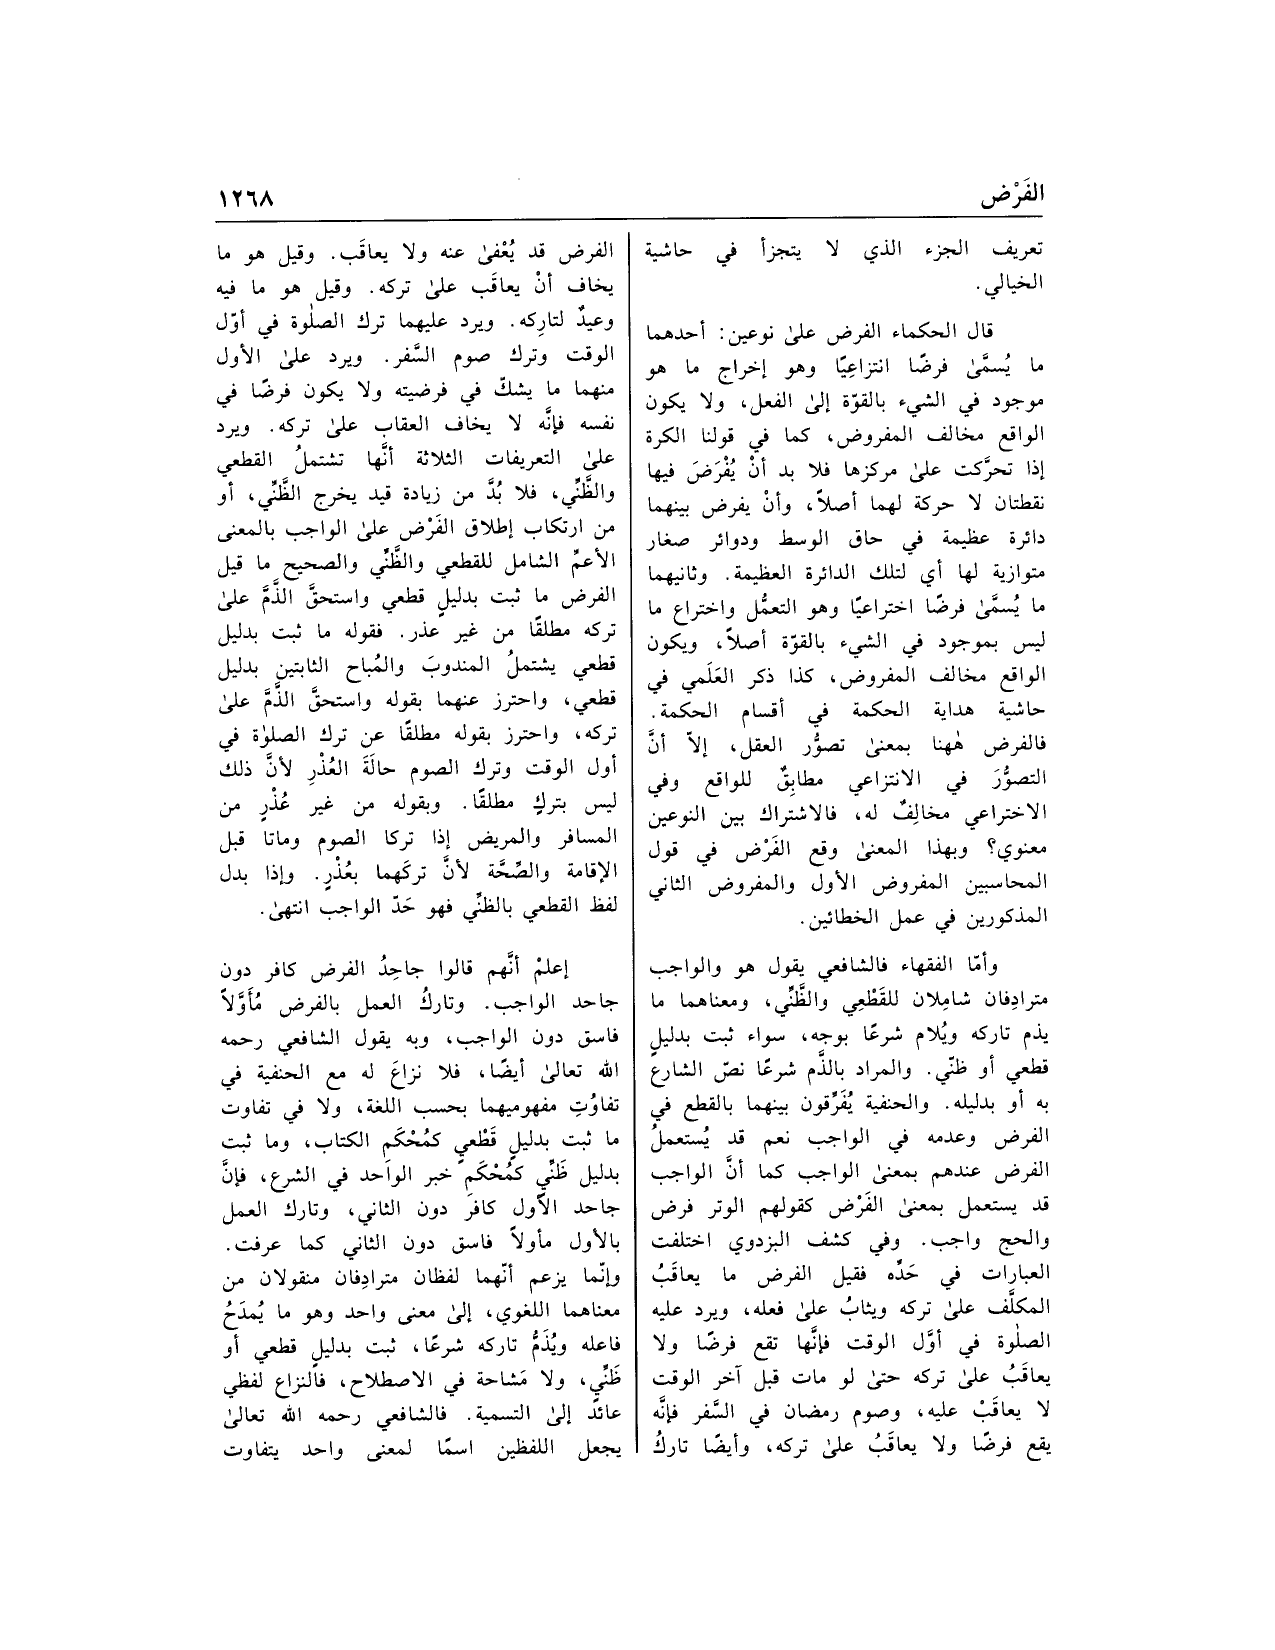 الفَرْض
١٢٦٨
تعريف الجزء الذي لا يتجزأ في حاشية
الخيالي.
قال الحكماء الفرض علىٰ نوعين: أحدهما
ما يُسمَّىٰ فرضًا انتزاعِيًا وهو إخراج ما هو
موجود في الشيء بالقوّة إلىٰ الفعل، ولا يكون
الواقع مخالف المفروض، كما في قولنا الكرة
إذا تحرَّكت علىٰ مركزها فلا بد أنْ يُفْرَضَ فيها
نقطتان لا حركة لهما أصلاً، وأنْ يفرض بينهما
دائرة عظيمة في حاق الوسط ودوائر صغار
متوازية لها أي لتلك الدائرة العظيمة. وثانيهما
ما يُسمَّىٰ فرضًا اختراعيًا وهو التعمُّل واختراع ما
ليس بموجود في الشيء بالقوّة أصلاً، ويكون
الواقع مخالف المفروض، كذا ذكر العَلَمي في
حاشية هداية الحكمة في أقسام الحكمة.
فالفرض هٰهنا بمعنىٰ تصوُّر العقل، إلاّ أنَّ
التصوُّرَ في الانتزاعي مطابِقٌ للواقع وفي
الاختراعي مخالِفٌ له، فالاشتراك بين النوعين
معنوي؟ وبهذا المعنىٰ وقع الفَرْض في قول
المحاسبين المفروض الأول والمفروض الثاني
المذكورين في عمل الخطائين.
وأمّا الفقهاء فالشافعي يقول هو والواجب
مترادِفان شامِلان للقَطْعِي والظَّنِّي، ومعناهما ما
يذم تاركه ويُلام شرعًا بوجه، سواء ثبت بدليلٍ
قطعي أو ظنّي. والمراد بالذَّم شرعًا نصّ الشارع
به أو بدليله. والحنفية يُفَرِّقون بينهما بالقطع في
الفرض وعدمه في الواجب نعم قد يُستعملُ
الفرض عندهم بمعنىٰ الواجب كما أنَّ الواجب
قد يستعمل بمعنىٰ الفَرْض كقولهم الوتر فرض
والحج واجب. وفي كشف البزدوي اختلفت
العبارات في حَدِّه فقيل الفرض ما يعاقَبُ
المكلَّف علىٰ تركه ويثابُ علىٰ فعله، ويرد عليه
الصلٰوة في أوَّل الوقت فإنَّها تقع فرضًا ولا
يعاقَبُ علىٰ تركه حتىٰ لو مات قبل آخر الوقت
لا يعاقَبْ عليه، وصوم رمضان في السَّفر فإنَّه
يقع فرضًا ولا يعاقَبُ علىٰ تركه، وأيضًا تاركُ
الفرض قد يُعْفىٰ عنه ولا يعاقَب. وقيل هو ما
يخاف أنْ يعاقَب علىٰ تركه. وقيل هو ما فيه
وعيدٌ لتارِكه. ويرد عليهما ترك الصلٰوة في أوّل
الوقت وترك صوم السَّفر. ويرد علىٰ الأول
منهما ما يشكّ في فرضيته ولا يكون فرضًا في
نفسه فإنَّه لا يخاف العقاب علىٰ تركه. ويرد
علىٰ التعريفات الثلاثة أنَّها تشتملُ القطعي
والظَّنِّي، فلا بُدَّ من زيادة قيد يخرج الظَّنِّي، أو
من ارتكاب إطلاق الفَرْض علىٰ الواجب بالمعنى
الأعمّ الشامل للقطعي والظَّنِّي والصحيح ما قيل
الفرض ما ثبت بدليلٍ قطعي واستحقَّ الذَّمَّ علىٰ
تركه مطلقًا من غير عذر. فقوله ما ثبت بدليل
قطعي يشتملُ المندوبَ والمُباح الثابتين بدليل
قطعي، واحترز عنهما بقوله واستحقَّ الذَّمَّ علىٰ
تركه، واحترز بقوله مطلقًا عن ترك الصلوٰة في
أول الوقت وترك الصوم حالَةَ العُذْرِ لأنَّ ذلك
ليس بتركٍ مطلقًا. وبقوله من غير عُذْرٍ من
المسافر والمريض إذا تركا الصوم وماتا قبل
الإقامة والصِّحَّة لأنَّ تركَهما بعُذْرٍ. وإذا بدل
لفظ القطعي بالظنِّي فهو حَدّ الواجب انتهىٰ.
إعلمْ أنَّهم قالوا جاحِدُ الفرض كافر دون
جاحد الواجب. وتاركُ العمل بالفرض مُأَوَّلاً
فاسق دون الواجب، وبه يقول الشافعي رحمه
الله تعالىٰ أيضًا، فلا نزاعَ له مع الحنفية في
تفاوُتِ مفهوميهما بحسب اللغة، ولا في تفاوت
ما ثبت بدليلٍ قَطْعي كمُحْكَم الكتاب، وما ثبت
بدليل ظَنِّي كمُحْكَمِ خبر الواحد في الشرع، فإنَّ
جاحد الأول كافر دون الثاني، وتارك العمل
بالأول مأولاً فاسق دون الثاني كما عرفت.
وإنّما يزعم أنّهما لفظان مترادِفان منقولان من
معناهما اللغوي، إلىٰ معنى واحد وهو ما يُمدَحُ
فاعله ويُذَمُّ تاركه شرعًا، ثبت بدليلٍ قطعي أو
ظَنِّي، ولا مَشاحة في الاصطلاح، فالنزاع لفظي
عائدٌ إلىٰ التسمية. فالشافعي رحمه الله تعالىٰ
يجعل اللفظين اسمًا لمعنى واحد يتفاوت